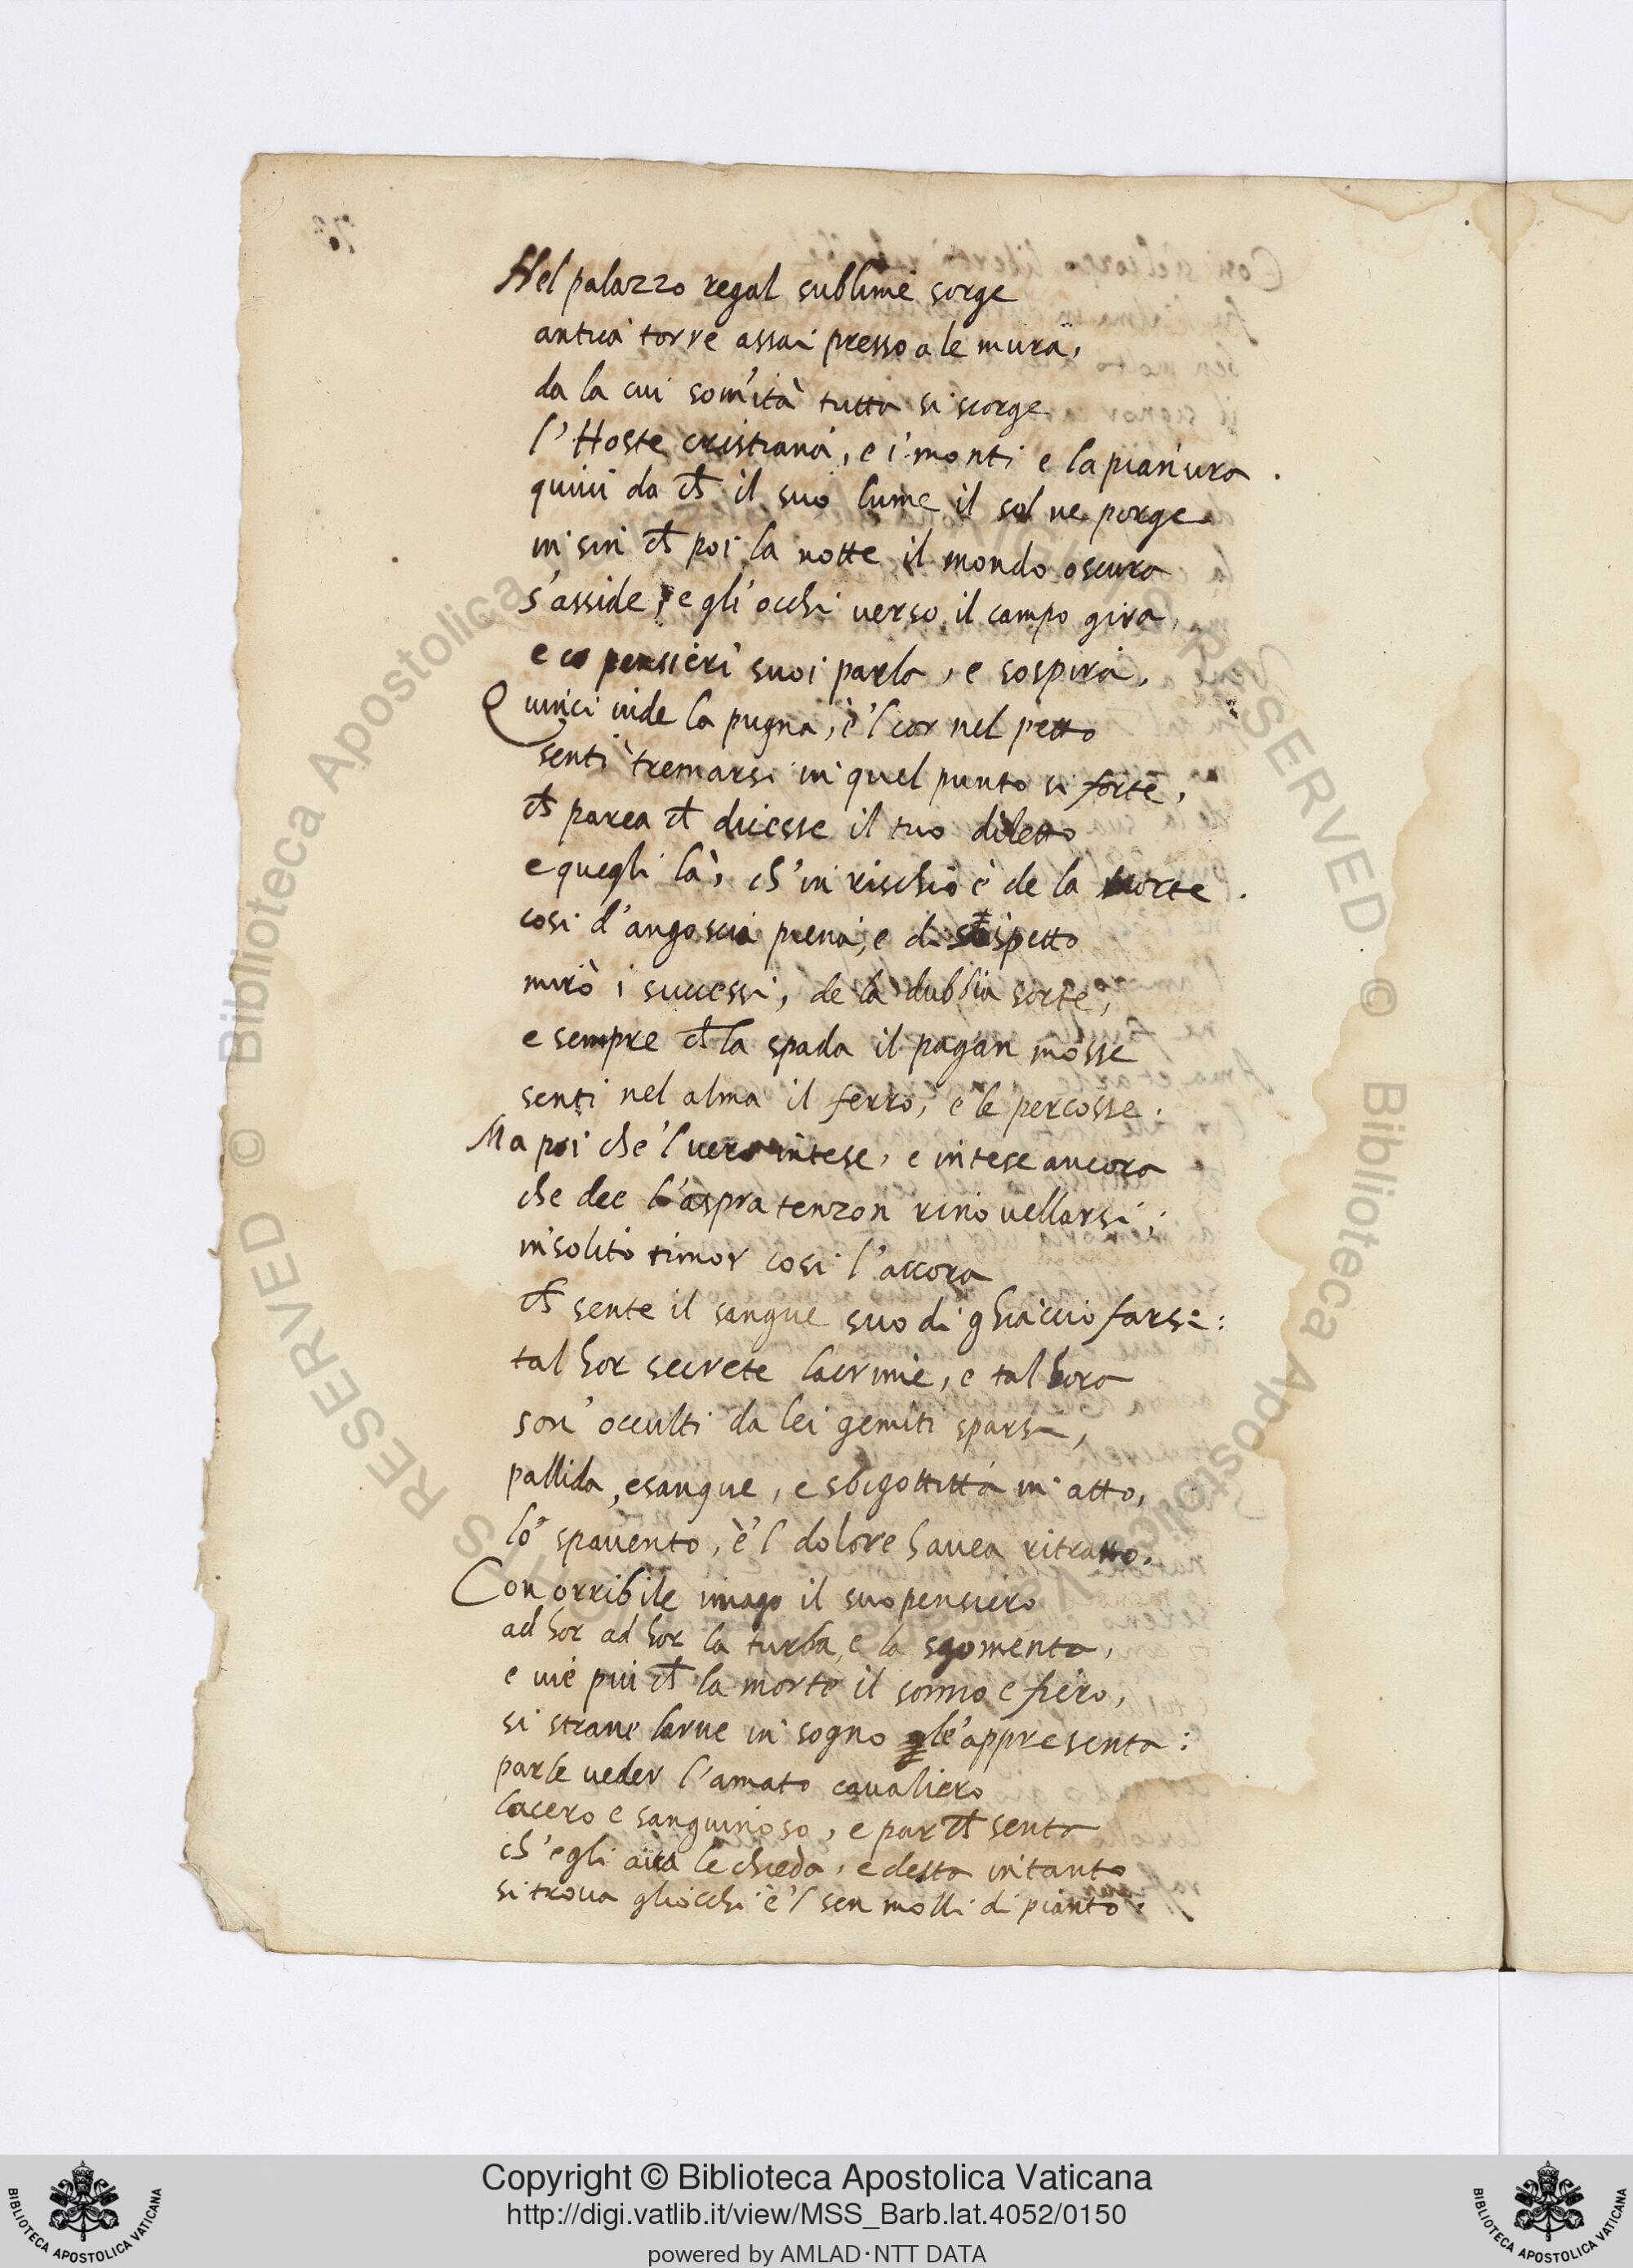 Nel palazzo regal sublime sorge
antica torre assai presso a le mura,
da la cui som̃ità tutta si scorge
l'Hoste cristiana, e i monti e la pianura.
quiui da ch̃ il suo lume il sol ne porge
in sin ch̃ poi la notte il mondo oscura
s'asside, e gli occhi verso il campo gira,
e co pensieri suoi parla, e sospira.
Quinci uide la pugna, e 'l cor nel petto
senti tremarsi in quel punto si forte,
ch̃ parea ch̃ dicesse il tuo diletto
e quegli là, ch'in rischio è de la morte.
cosi d'angoscia piena, e di sospetto
mirò i successi, de la dubbia sorte,
e sempre ch̃ la spada il pagan mosse
senti nel alma il ferro, e le percosse.
Ma poi che 'l uero intese, e intese ancora
che dee l'aspra tenzon rinouellarsi;
insolito timor cosi l'accora
ch̃ sente il sangue suo di ghiaccio farsi:
tal hor secrete lacrime, e tal hora
son' occulti da lei gemiti sparsi,
pallida, esangue, e sbigottita in atto,
lo spauento, e 'l dolore hauea ritratto.
Con orribile imago il suo pensiero
ad hor ad hor la turba, e la sgomenta,
e uie piu ch̃ la morte il sonno e fiero,
si strane larue in sogno le appresenta:
parle ueder l'amato caualiero
lacero e sanguinoso, e par ch̃ senta
ch'egli aita le chieda, e desta intanto
si troua gli occhi e 'l sen molli di pianto.
Copyright © Biblioteca Apostolica Vaticana
http://digi.vatlib.it/view/MSS_Barb.lat.4052/0150
powered by AMLAD·NTT DATA
BIBLIOTECA APOSTOLICA VATICANA
BIBLIOTECA APOSTOLICA VATICANA